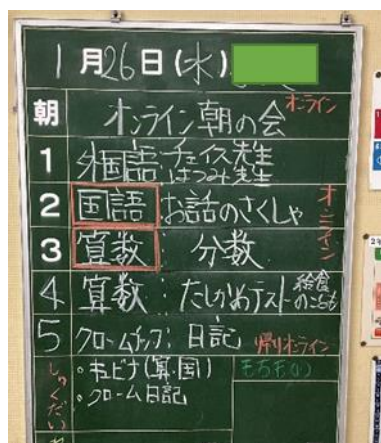 1月26日(水)
朝 オンライン朝の会 オンライン
1 外国語:チェイス先生
はつみ先生
2 国語 お話のさくしゃ オンライン
3 算数 分数
4 算数:たしかめテスト 給食のこんだて
5 クロームブック:日記 帰りオンライン
しゅくだい
・キュビナ(算・国)
・クローム日記